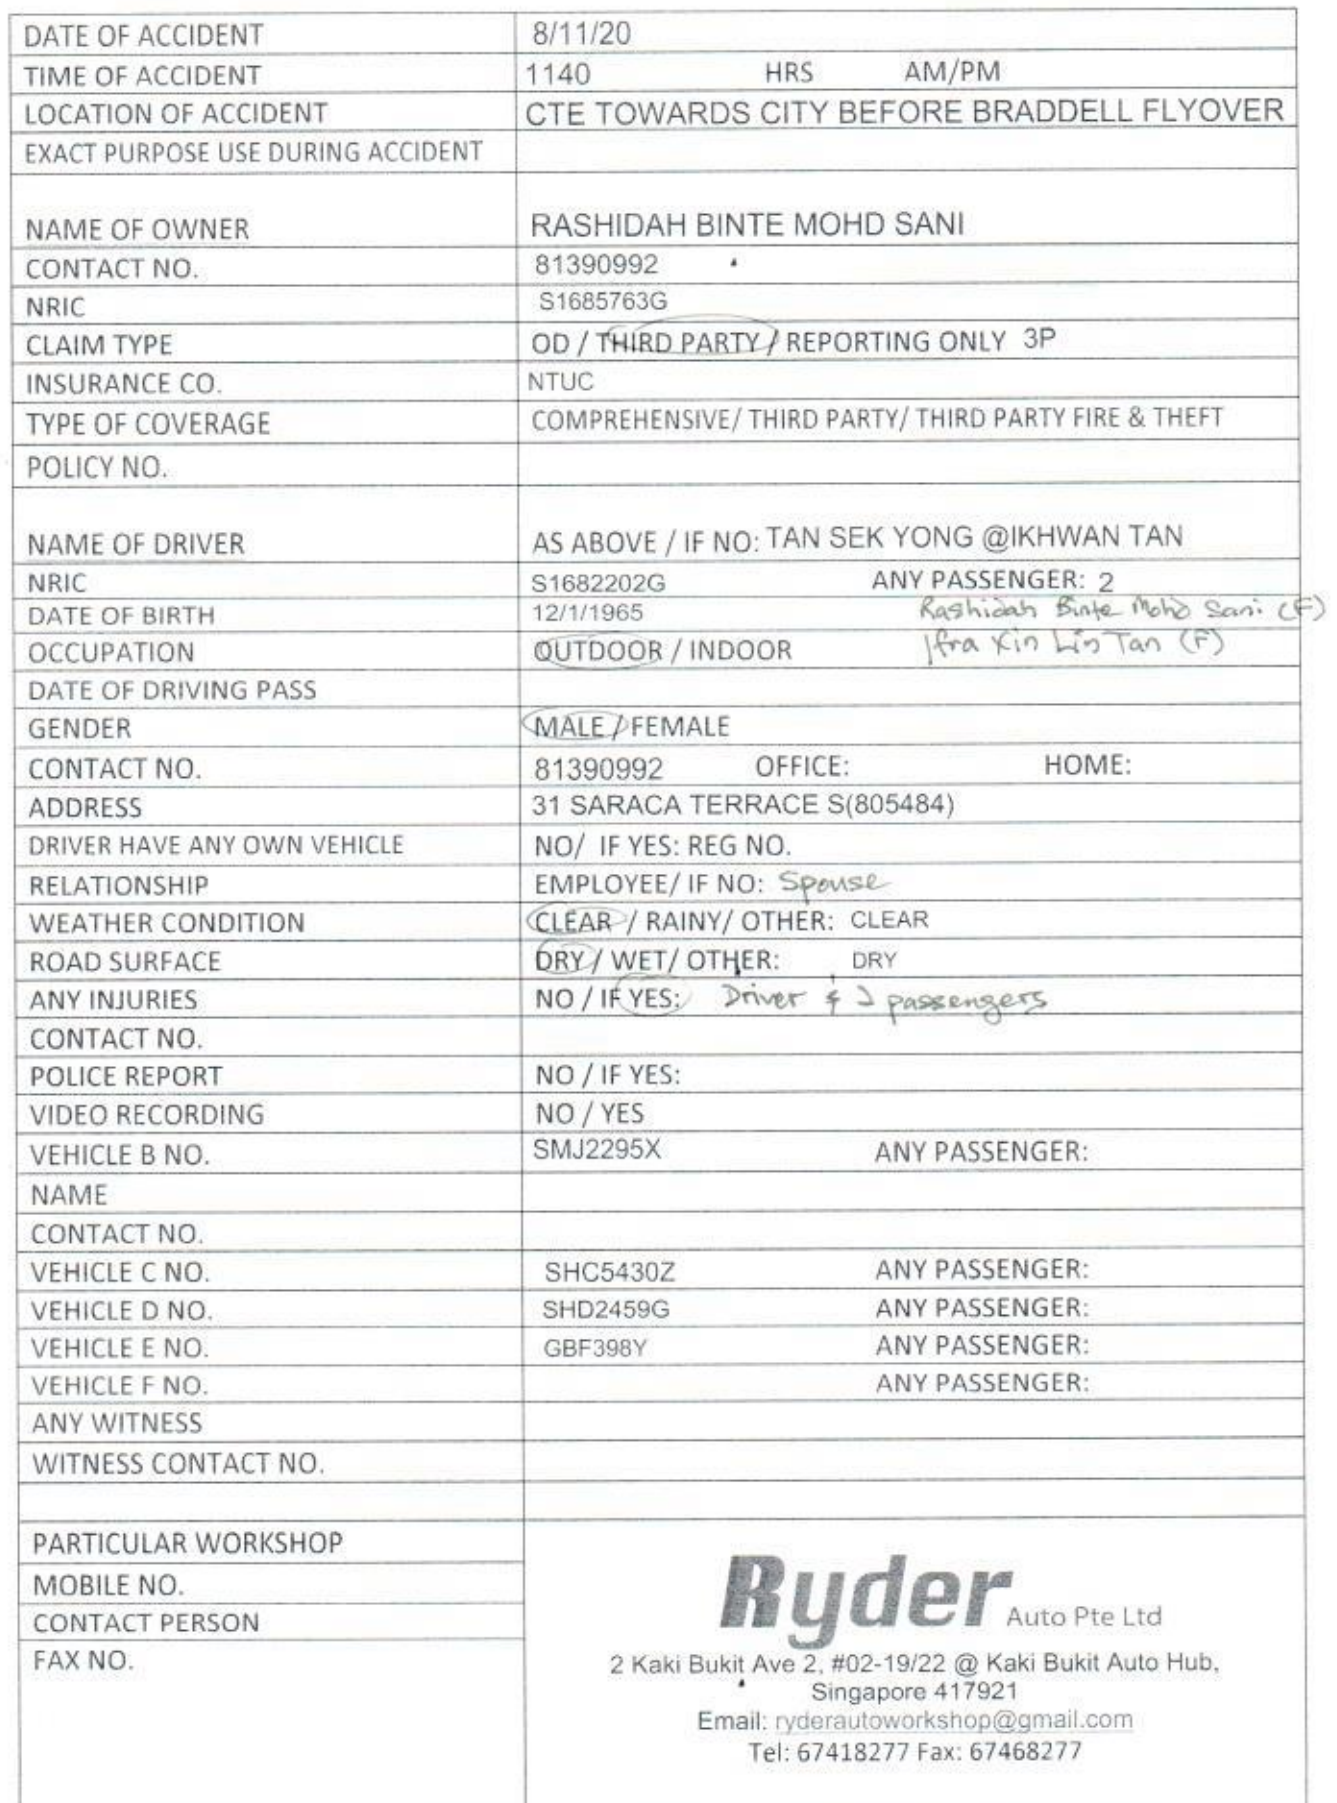 DATE OF ACCIDENT 8/11/20
TIME OF ACCIDENT 1140 HRS AM/PM
LOCATION OF ACCIDENT CTE TOWARDS CITY BEFORE BRADDELL FLYOVER
EXACT PURPOSE USE DURING ACCIDENT
NAME OF OWNER RASHIDAH BINTE MOHD SANI
CONTACT NO. 81390992
NRIC S1685763G
CLAIM TYPE OD / THIRD PARTY / REPORTING ONLY 3P
INSURANCE CO. NTUC
TYPE OF COVERAGE COMPREHENSIVE/ THIRD PARTY/ THIRD PARTY FIRE & THEFT
POLICY NO.
NAME OF DRIVER AS ABOVE / IF NO: TAN SEK YONG @IKHWAN TAN
NRIC S1682202G ANY PASSENGER: 2
DATE OF BIRTH 12/1/1965 Rashidah Binte Mohd Sani (F)
OCCUPATION OUTDOOR / INDOOR Ifra Xin Lin Tan (F)
DATE OF DRIVING PASS
GENDER MALE / FEMALE
CONTACT NO. 81390992 OFFICE: HOME:
ADDRESS 31 SARACA TERRACE S(805484)
DRIVER HAVE ANY OWN VEHICLE NO/ IF YES: REG NO.
RELATIONSHIP EMPLOYEE/ IF NO: Spouse
WEATHER CONDITION CLEAR / RAINY/ OTHER: CLEAR
ROAD SURFACE DRY / WET/ OTHER: DRY
ANY INJURIES NO / IF YES: Driver & 2 passengers
CONTACT NO.
POLICE REPORT NO / IF YES:
VIDEO RECORDING NO / YES
VEHICLE B NO. SMJ2295X ANY PASSENGER:
NAME
CONTACT NO.
VEHICLE C NO. SHC5430Z ANY PASSENGER:
VEHICLE D NO. SHD2459G ANY PASSENGER:
VEHICLE E NO. GBF398Y ANY PASSENGER:
VEHICLE F NO. ANY PASSENGER:
ANY WITNESS
WITNESS CONTACT NO.
PARTICULAR WORKSHOP
MOBILE NO.
CONTACT PERSON
FAX NO.
Ryder Auto Pte Ltd
2 Kaki Bukit Ave 2, #02-19/22 @ Kaki Bukit Auto Hub,
Singapore 417921
Email: ryderautoworkshop@gmail.com
Tel: 67418277 Fax: 67468277